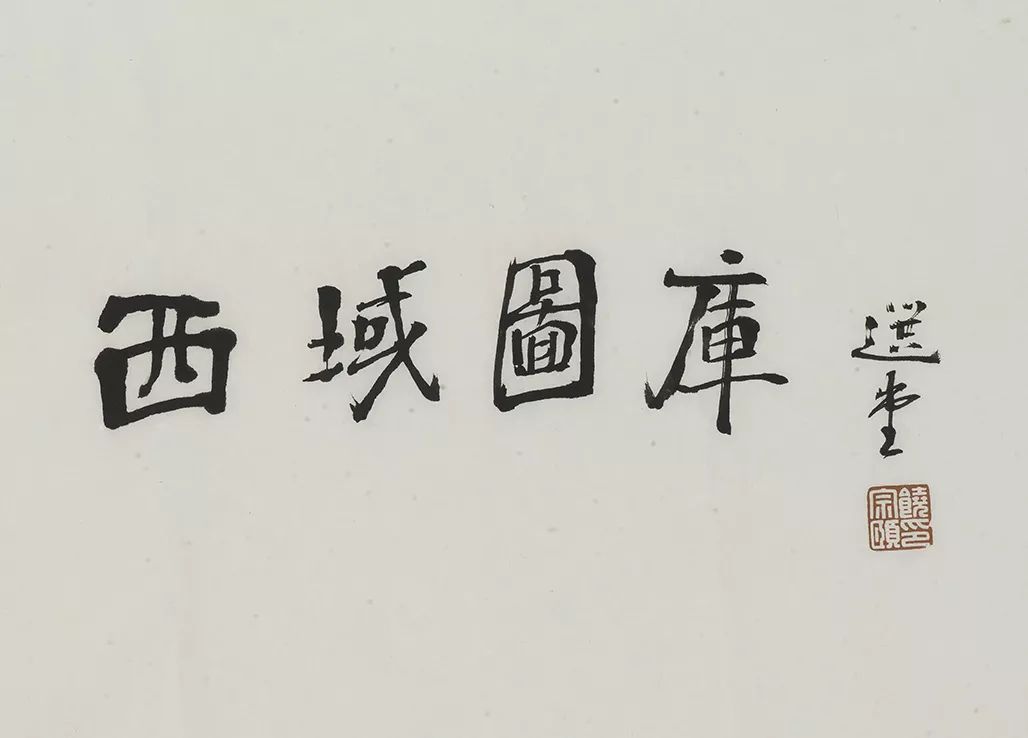 西域圖庫
選堂
饒宗頤印